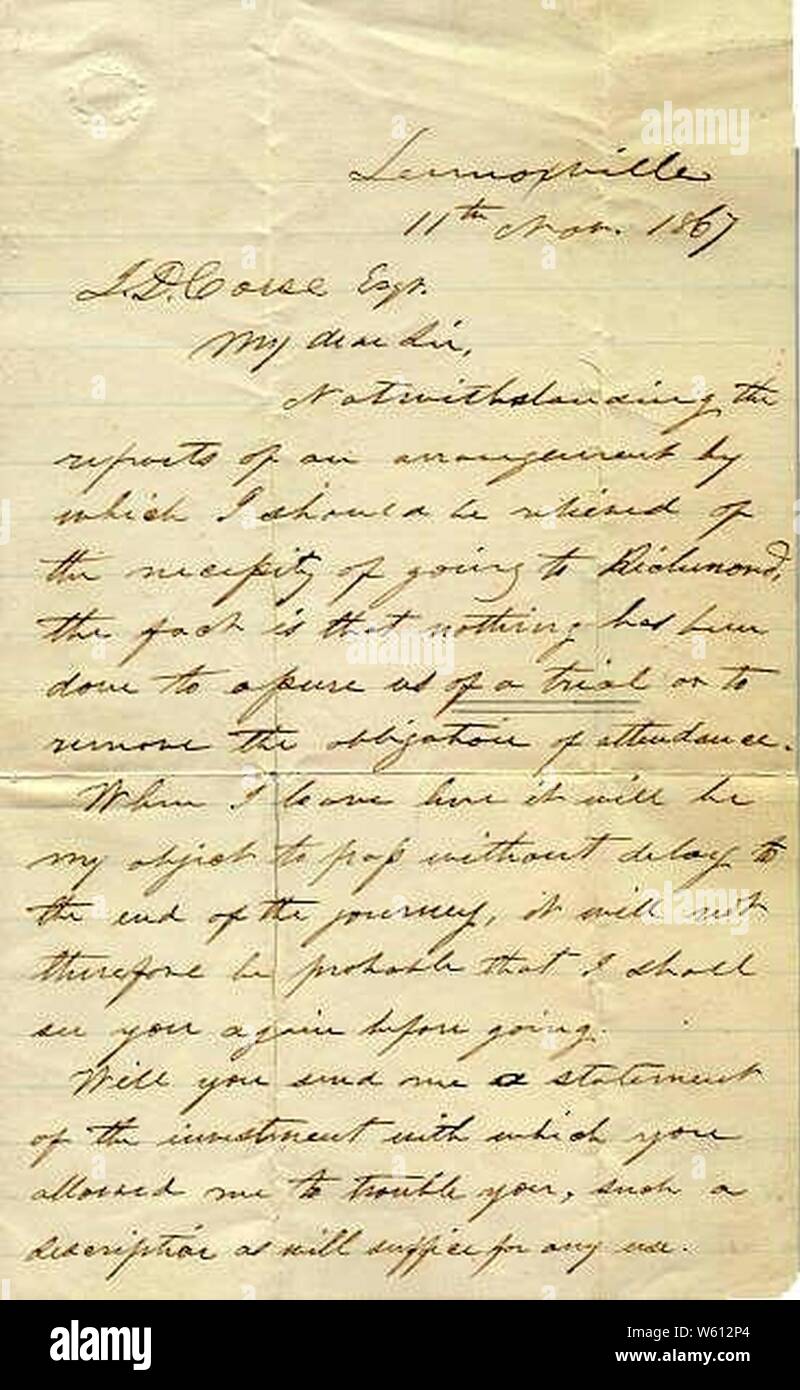 Lennoxville
11th Nov. 1867
J. D. Corse Esqr.
My dear Sir,
Notwithstanding the
reports of an arrangement by
which I should be relieved of
the necessity of going to Richmond,
the fact is that nothing has been
done to assure us of a trial or to
remove the obligation of attendance.
When I leave here it will be
my object to pass without delay to
the end of the journey, it will not
therefore be probable that I shall
see you again before going.
Will you send me a statement
of the investment with which you
allowed me to trouble you, such a
description as will suffice for any use.
alamy
alamy
Image ID: W612P4
www.alamy.com